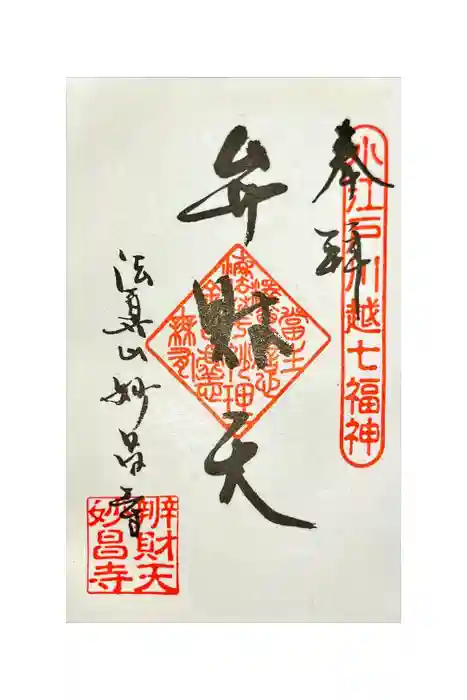 奉拝
小江戸川越七福神
弁財天
法真山妙昌寺
辨財天
妙昌寺